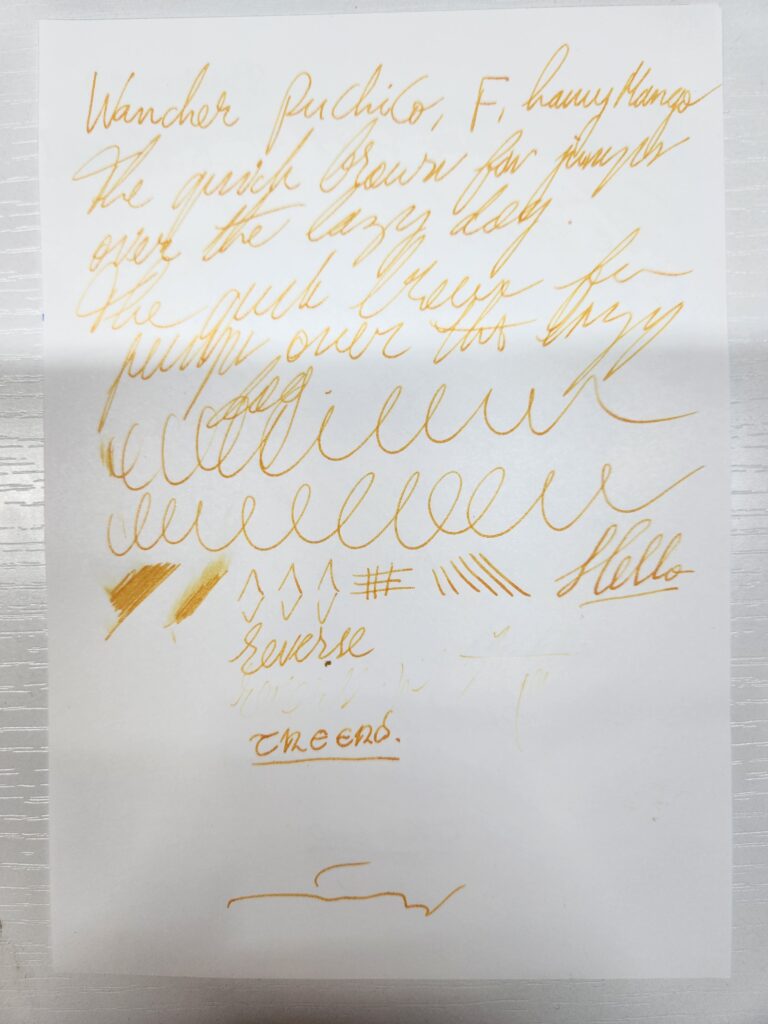 Wancher Puchico, F, Mango
The quick brown fox jumps
over the lazy dog.
The quick brown fox
jumps over the lazy
dog.
Hello
reverse
THE END.